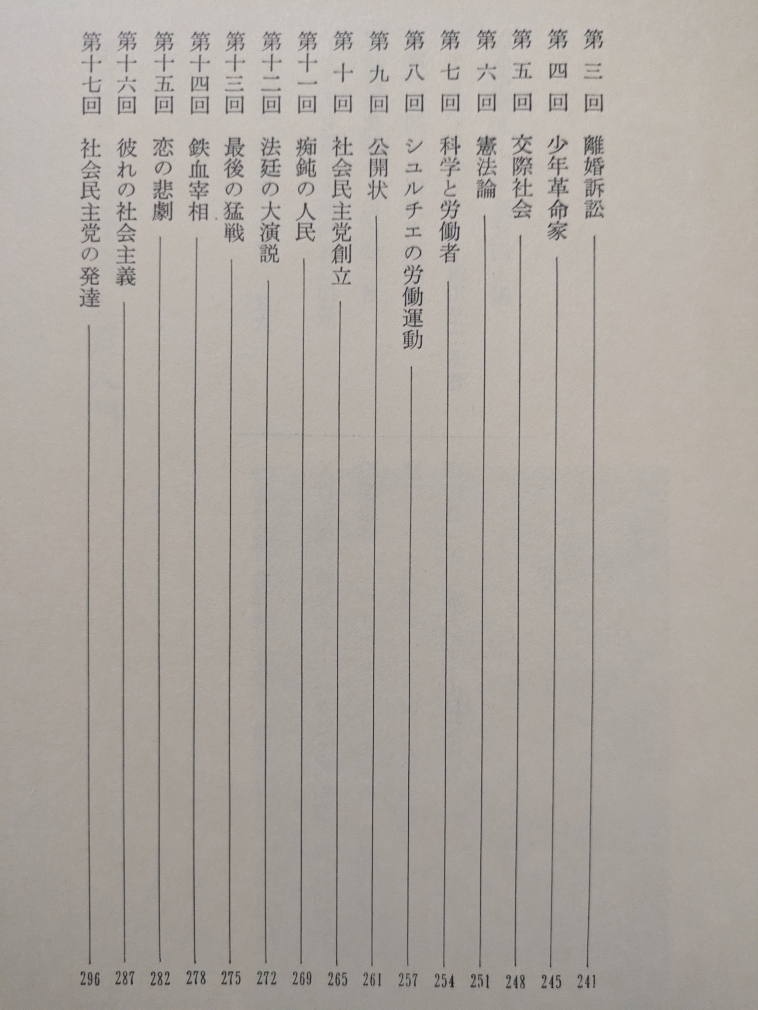 第三回 離婚訴訟 241
第四回 少年革命家 245
第五回 交際社会 248
第六回 憲法論 251
第七回 科学と労働者 254
第八回 シュルチエの労働運動 257
第九回 公開状 261
第十回 社会民主党創立 265
第十一回 痴鈍の人民 269
第十二回 法廷の大演説 272
第十三回 最後の猛戦 275
第十四回 鉄血宰相 278
第十五回 恋の悲劇 282
第十六回 彼れの社会主義 287
第十七回 社会民主党の発達 296